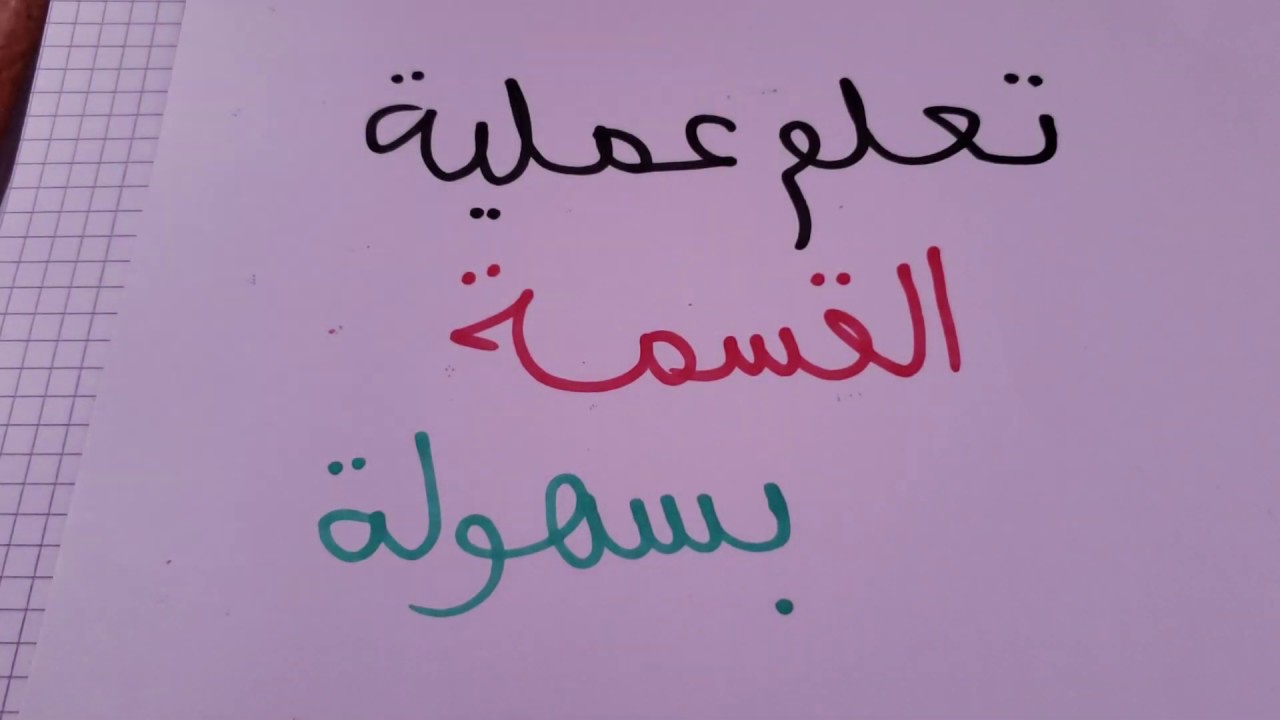 تعلم عملية
القسمة
بسهولة